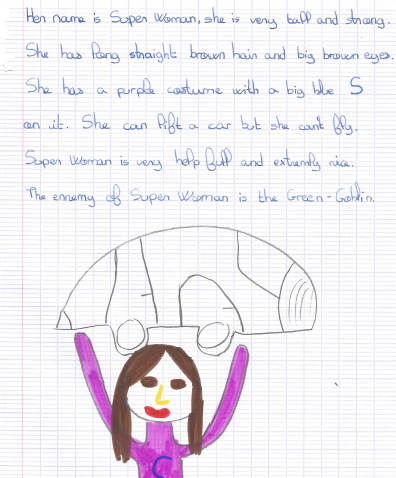 Her name is Super Woman, she is very tall and strong.
She has long straight brown hair and big brown eyes.
She has a purple costume with a big blue S
on it. She can lift a car but she can't fly.
Super Woman is very help full and extremly nice.
The ennemy of Super Woman is the Green-Goblin.